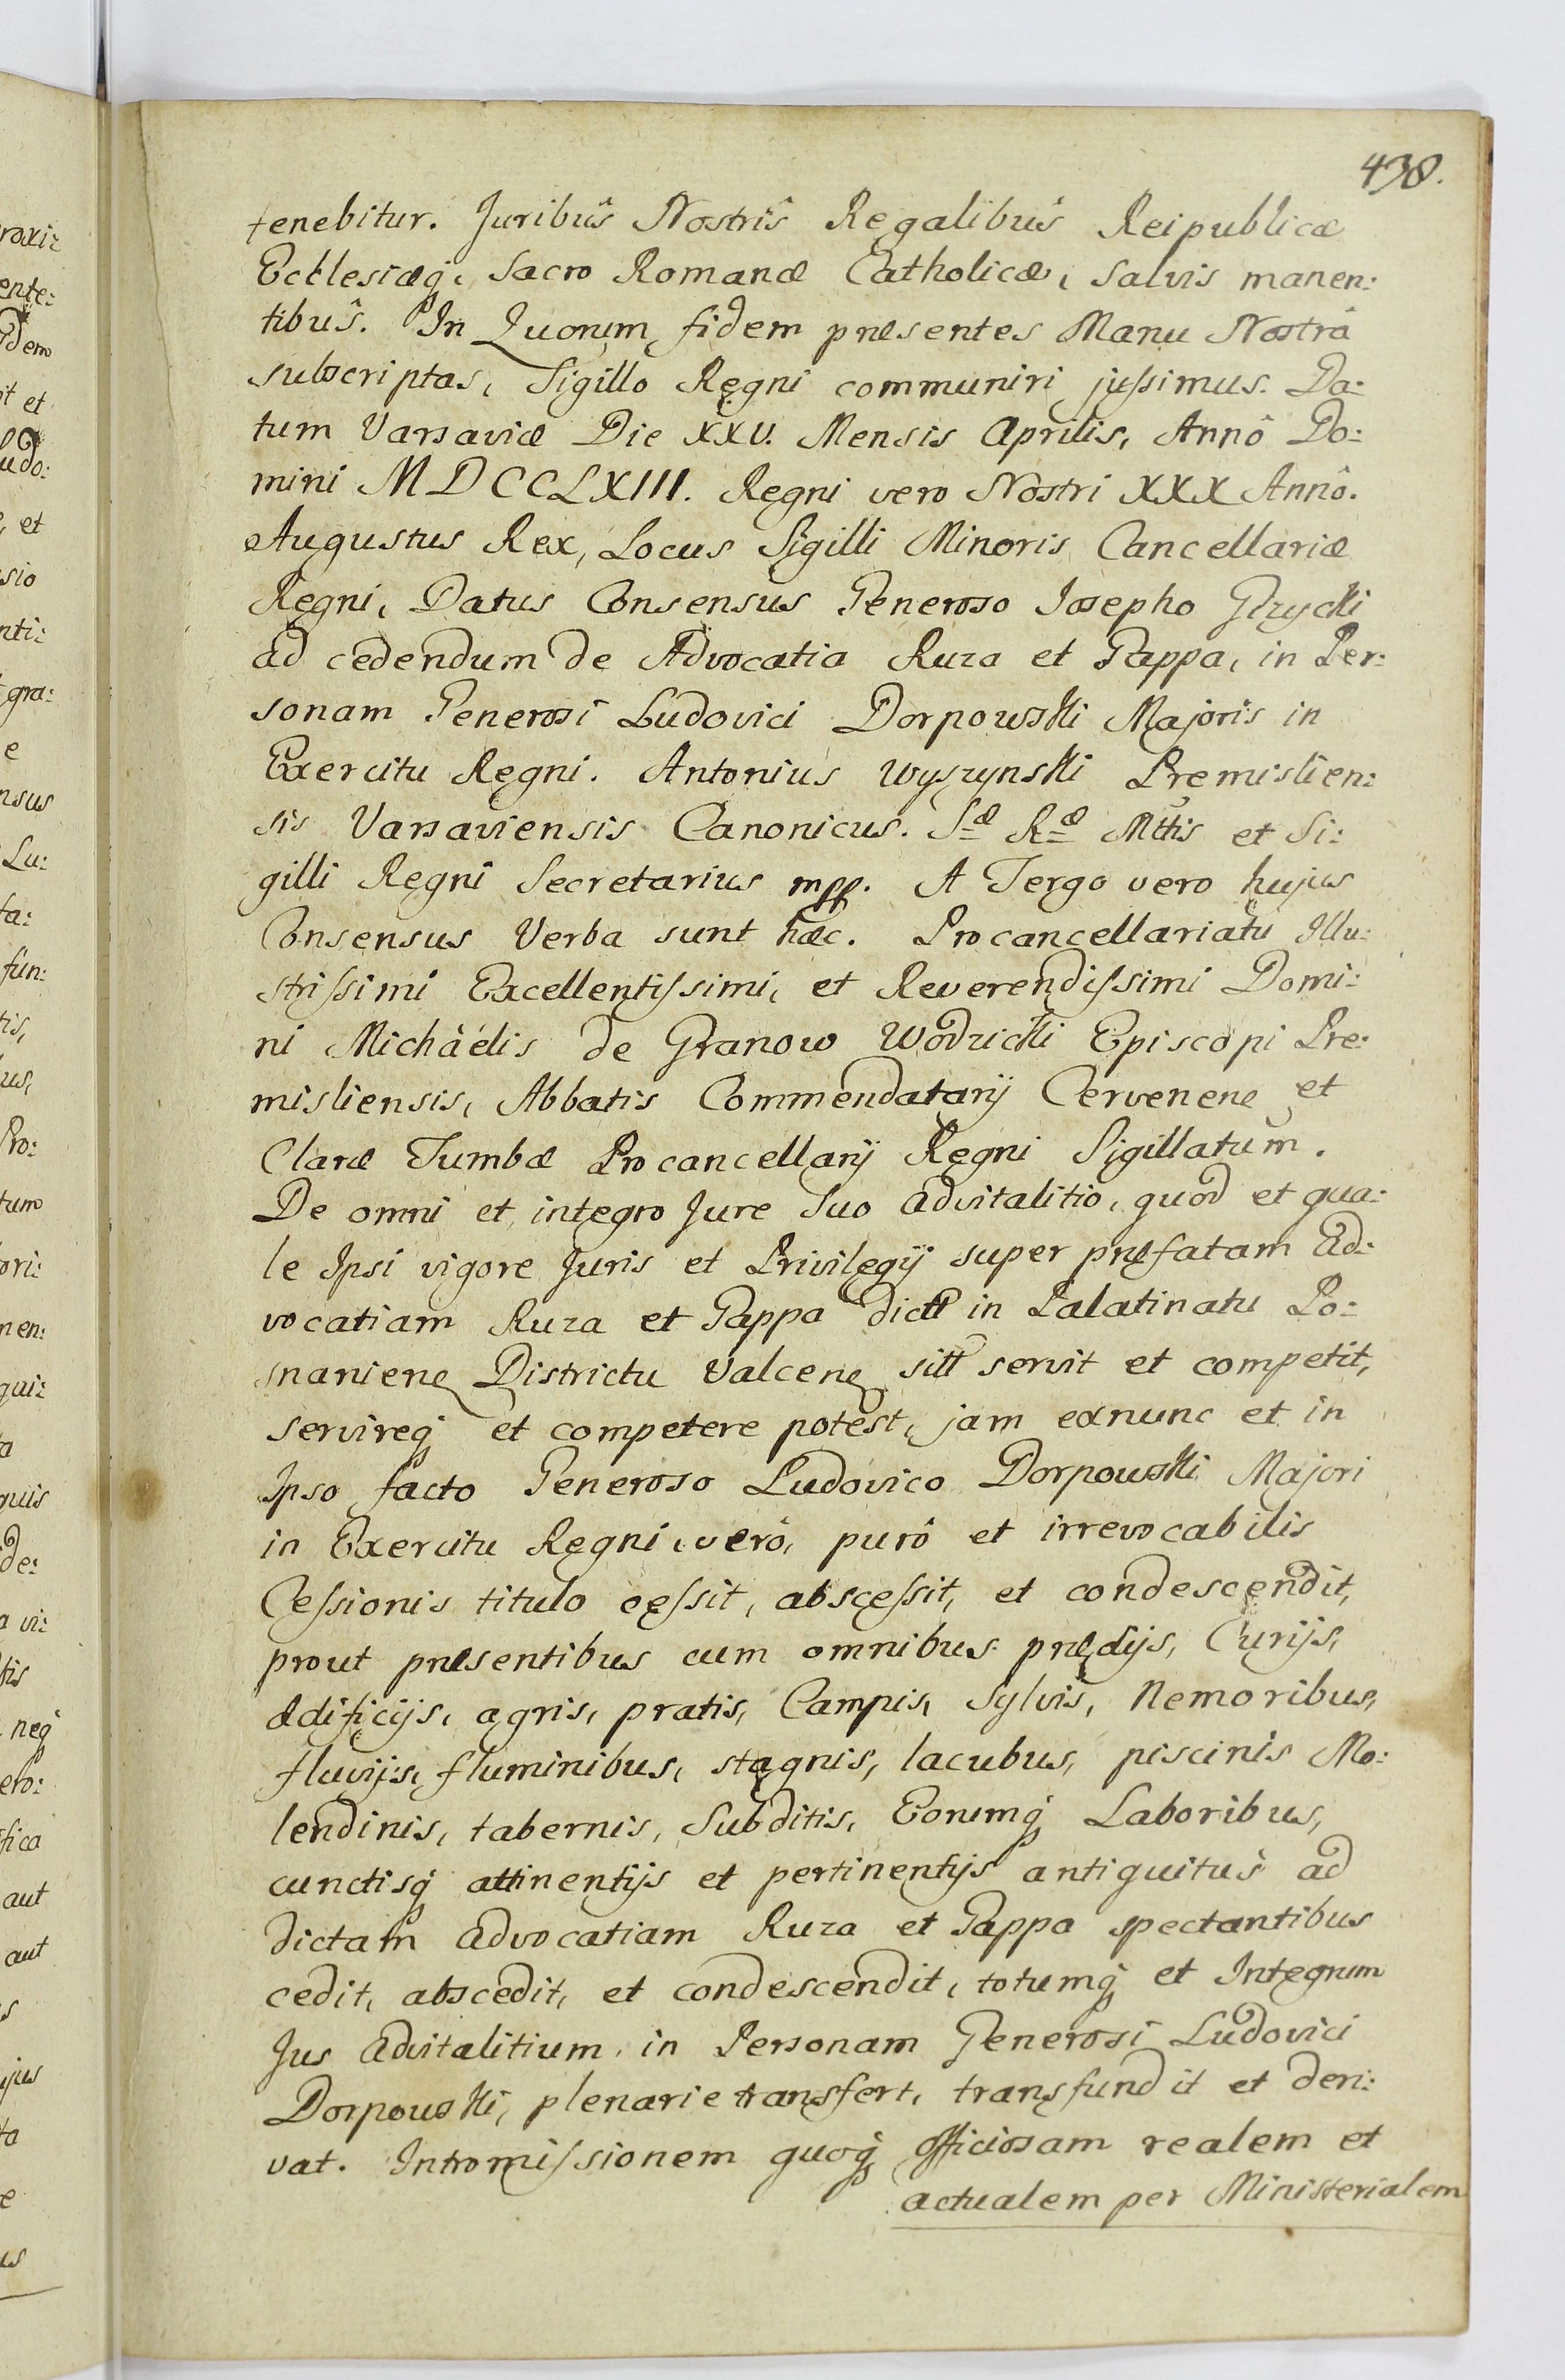 438.
tenebitur. Juribus Nostris Regalibus Reipublicæ
Ecclesiæq;, Sacro Romanæ Catholicæ, salvis manen:
tibus. In Quorum fidem præsentes Manu Nostrâ
subscriptas, Sigillo Regni communiri jussimus. Da:
tum Varsaviæ Die XXV. Mensis Aprilis, Annô Do:
mini MDCCLXIII. Regni vero Nostri XXX Annô.
Augustus Rex, Locus Sigilli Minoris Cancellariæ
Regni, Datus Consensus Generoso Josepho
ad cedendum de Advocatia Ruza et Gappa, in Per:
sonam Generosi Ludovici Dorpowski Majoris in
Exercitu Regni. Antonius Wyszynski Premislien:
sis Varsaviensis Canonicus. Sæ Ræ Mttis et Si:
gilli Regni Secretarius mpp. A Tergo vero hujus
Consensus Verba sunt hæc. Procancellariatu Illu:
strissimi Excellentissimi, et Reverendissimi Domi:
ni Michäelis de Granow Wodzicki Episcopi Pre:
misliensis, Abbatis Commendatarij Cervenene et
Claræ Tumbæ Procancellarij Regni Sigillatum.
De omni et integro Jure Suo advitalitio, quod et qua:
le Ipsi vigore Juris et Privilegij super præfatam Ad:
vocatiam Ruza et Gappa dictt in Palatinatu Po:
snaniene Districtu Valcene sitt servit et competit,
servireq; et competere potest, jam exnunc et in
Ipso facto Generoso Ludovico Dorpowski Majori
in Exercitu Regni, verô, purô et irrevocabilis
Cessionis titulo cessit, abscessit, et condescendit,
prout præsentibus cum omnibus prædijs, Curijs,
ædificijs, agris, pratis, Campis, Sylvis, Nemoribus,
fluvijs, fluminibus, stagnis, lacubus, piscinis Mo:
lendinis, tabernis, Subditis, Eorumq; Laboribus,
cunctisq; attinentijs et pertinentijs antiquitus ad
dictam advocatiam Ruza et Gappa spectantibus
cedit, abscedit, et condescendit, totumq; et Integrum
Jus advitalitium in Personam Generosi Ludovici
Dorpowski, plenarie transfert, transfundit et deri:
vat. Intromissionem quoq; officiosam realem et
actualem per Ministerialem